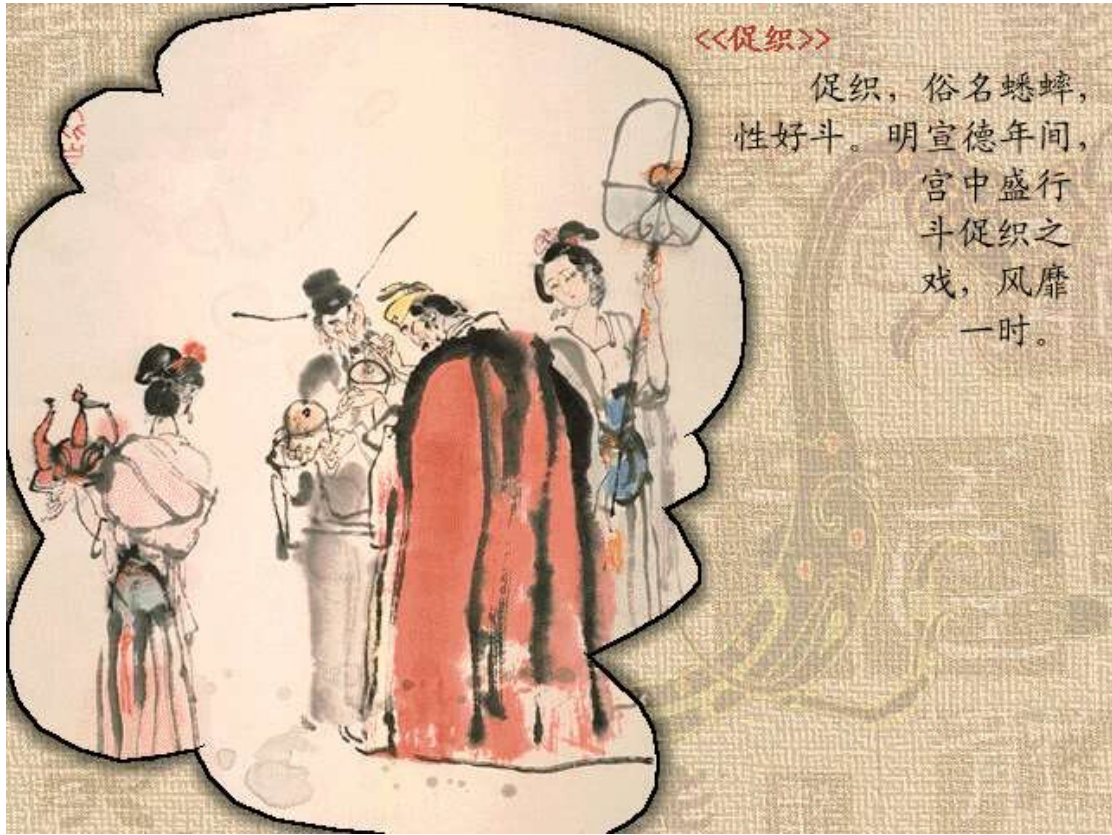 <<促织>>
促织，俗名蟋蟀，
性好斗。明宣德年间，
宫中盛行
斗促织之
戏，风靡
一时。